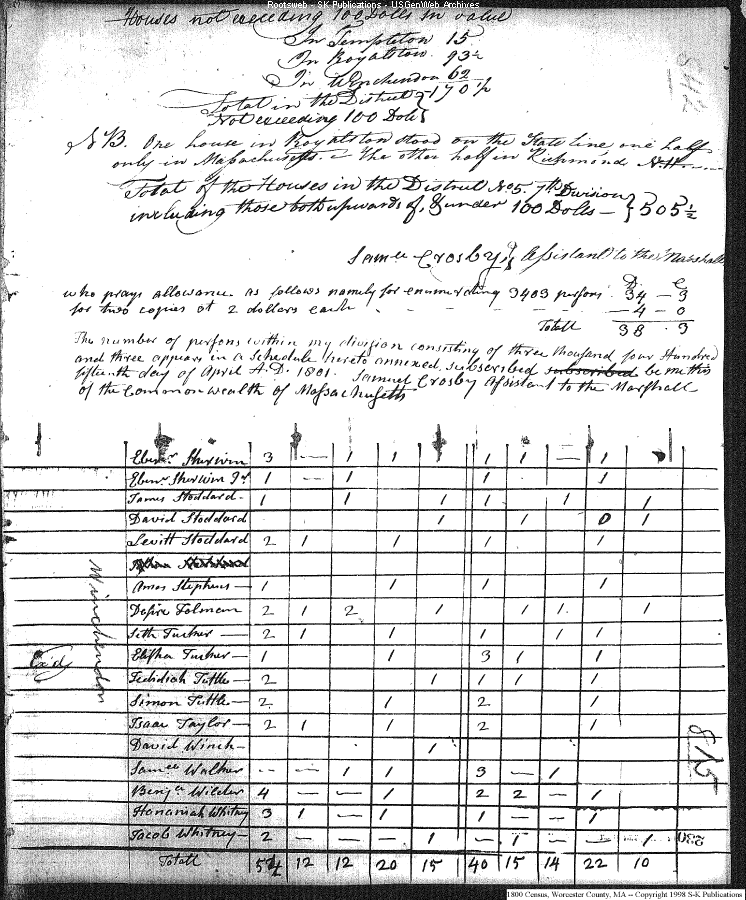 Rootsweb - SK Publications - USGenWeb Archives
Houses not exceeding 100 Dolls in value
In Templeton 15
In Royalston 93½
In Winchendon 62
Total in the District } 170½
Not exceeding 100 Dolls }
NB. One house in Royalston stood on the State line one half
only in Massachusetts. – The other half in Richmond N.H.
Total of the Houses in the District No 5. 7th Division
including those both upwards of, & under 100 Dolls – } 505½
Samll Crosby, Assistant to the Marshall
who prays allowance as follows namely for enumerating 3403 persons D. 34 – C. 3
for two copies at 2 dollars each – – – – – 4 – 0
Totall 38 . 3
The number of persons within my division consisting of three thousand four Hundred
and three appears in a schedule hereto annexed, subscribed subscribed be me this
fifteenth day of April A.D. 1801. Samuel Crosby Assistant to the Marshall
of the Commonwealth of Massachusetts
Winchendon
Ex'd
Ebenr Sherwin 3 – 1 1 1 1 – 1
Ebenr Sherwin Jr 1 – 1 1 1
James Stoddard – 1 1 1 1 1 1
David Stoddard 1 1 0 1
Levitt Stoddard 2 1 1 1 1
Amos Stephens – 1 1 1 1
Desire Tolman 2 1 2 1 1 1 1
Seth Tucker – 2 1 1 1 1 1
Elisha Tucker – 1 1 3 1 1
Jedidiah Tuttle – 2 1 1 1 1
Simon Tuttle – 2 1 2 1
Isaac Taylor – 2 1 1 2 1
David Winch – 1
Samll Walker – – 1 1 3 – 1
Benja Wilder 4 – – 1 2 2 – 1
Hananiah Whitney 3 1 – 1 1 – – 1
Jacob Whitney – 2 – – – 1 – 1 – – 1
Totall 54 12 12 20 15 40 15 14 22 10
815
230
1800 Census, Worcester County, MA -- Copyright 1998 S-K Publications